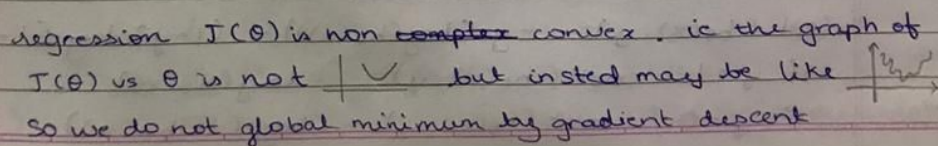 regression J(θ) is non complex convex. ie the graph of
J(θ) vs θ is not but insted may be like
So we do not global minimum by gradient descent